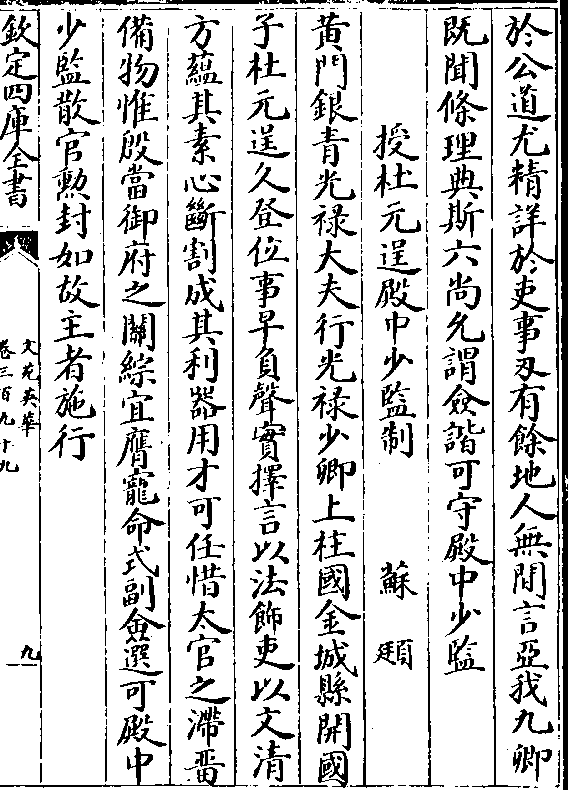 於公道尤精詳於吏事刄有餘地人無閒言亞我九卿
既聞條理典斯六尚允謂僉諧可守殿中少監
授杜元逞殿中少監制 蘇頲
黃門銀青光祿大夫行光祿少卿上柱國金城縣開國
子杜元逞久登位事早負聲實擇言以法飾吏以文清
方蘊其素心斷割成其利器用才可任惜太官之滯畱
備物惟殷當御府之關綜宜膺寵命式副僉選可殿中
少監散官勲封如故主者施行
欽定四庫全書
文苑英華
卷三百九十九
九